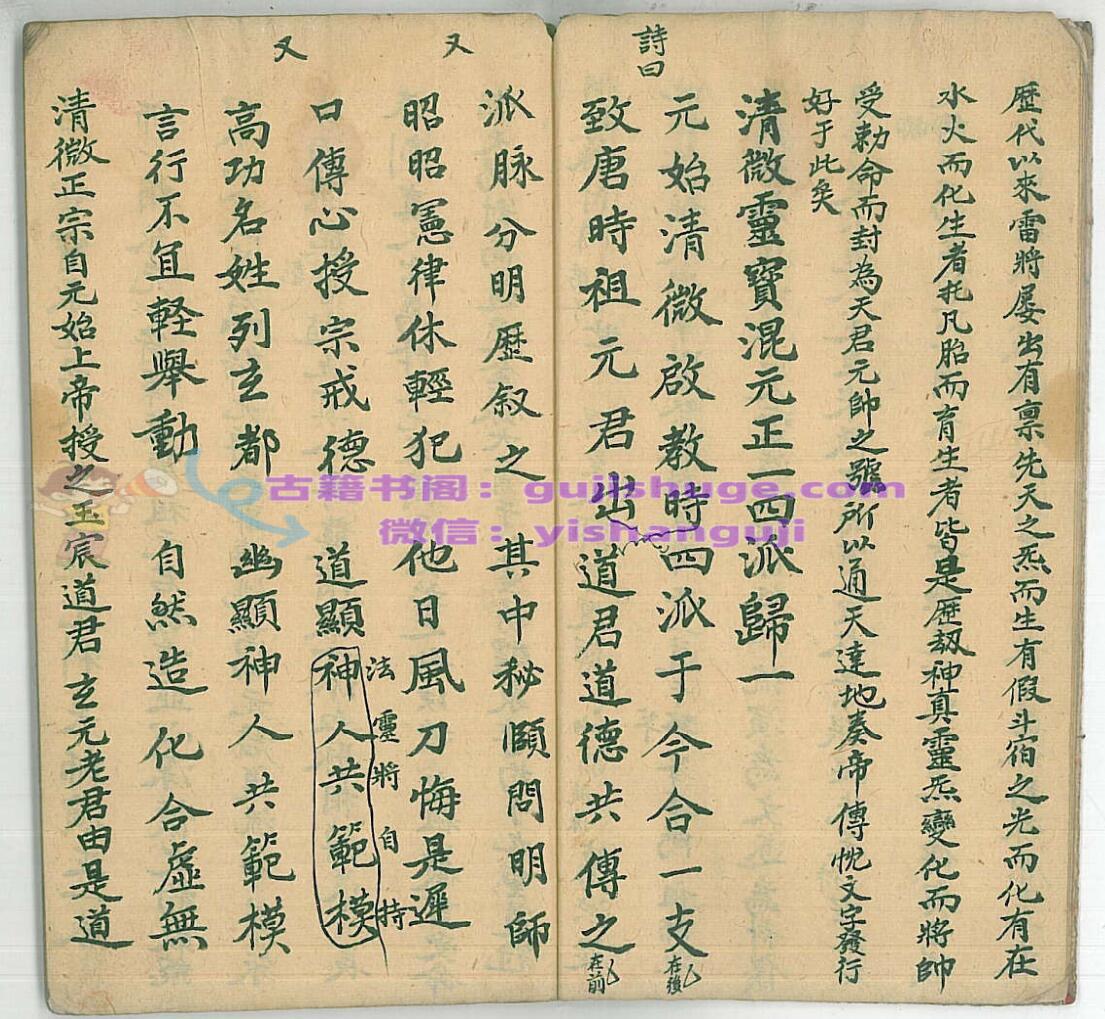 歷代以來雷將屡出有禀先天之炁而生有假斗宿之光而化有在
水火而化生者托凡胎而育生者皆是歷劫神真靈炁變化而將帥
受勅命而封為天君元帥之號所以通天達地奏帝傳忱文字發行
好于此矣
清微靈寶混元正一四派歸一
詩曰
元始清微啟教時四派于今合一支
在後
致唐時祖元君出 道君道德共傳之
在前
派脉分明歷叙之 其中秘願問明師
又
昭昭憲律休輕犯 他日風刀悔是遲
法靈將自持
口傳心授宗戒德 道顯神人共範模
又
高功名姓列玄都 幽顯神人共範模
言行不宜輕舉動 自然造化合虛無
清微正宗自元始上帝授之玉宸道君玄元老君由是道
古籍书阁：gujishuge.com
微信：yishanguji